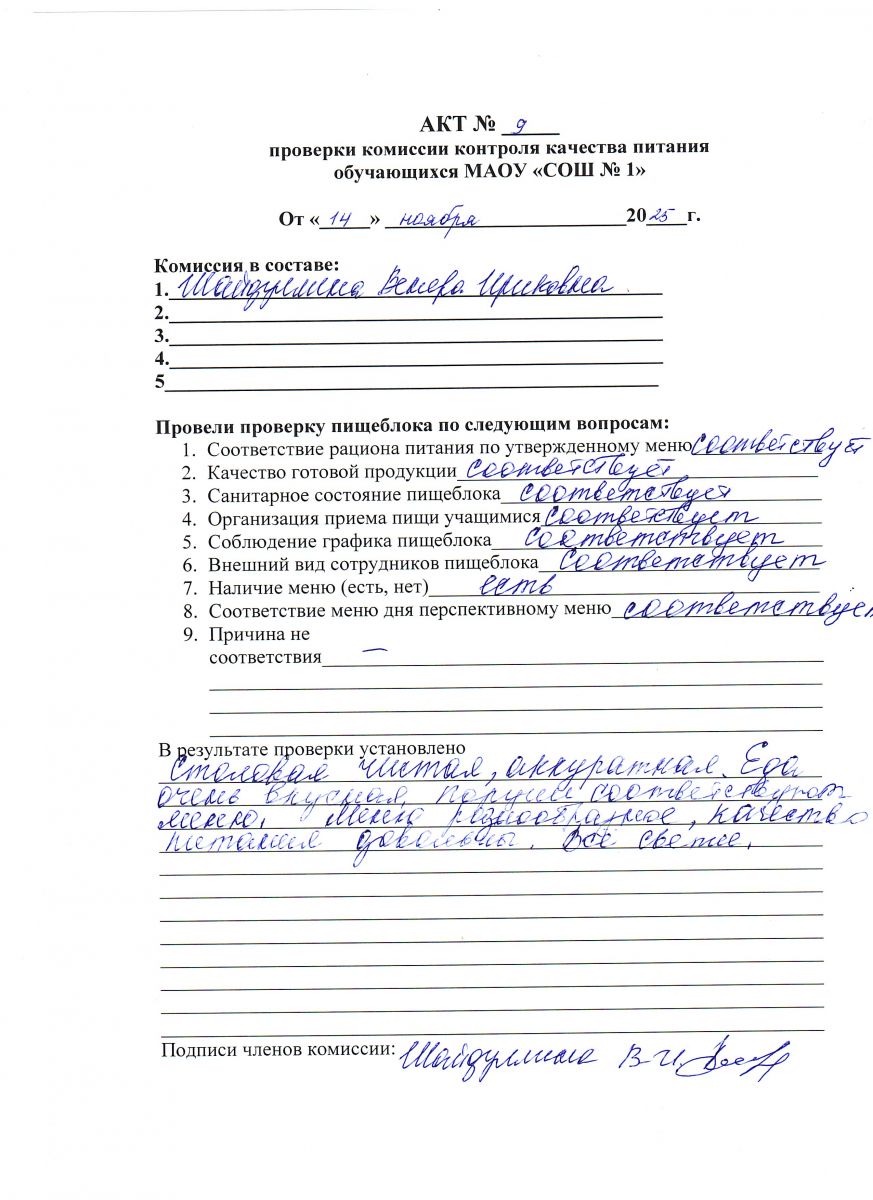 АКТ № 9
проверки комиссии контроля качества питания
обучающихся МАОУ «СОШ № 1»
От «14» ноября 2025 г.
Комиссия в составе:
1. Шайдуллина Венера Ириковна
2.
3.
4.
5
Провели проверку пищеблока по следующим вопросам:
1. Соответствие рациона питания по утвержденному меню соответствует
2. Качество готовой продукции соответствует
3. Санитарное состояние пищеблока соответствует
4. Организация приема пищи учащимися соответствует
5. Соблюдение графика пищеблока соответствует
6. Внешний вид сотрудников пищеблока соответствует
7. Наличие меню (есть, нет) есть
8. Соответствие меню дня перспективному меню соответствует
9. Причина не
соответствия —
В результате проверки установлено
Столовая чистая, аккуратная. Еда
очень вкусная, порции соответствуют
меню. Меню разнообразное, качество
питания довольны. Всё свежее.
Подписи членов комиссии: Шайдуллина В.И.